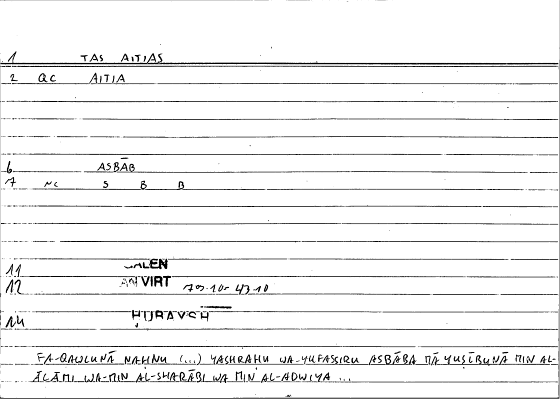 1 TAS AITIAS
2 QC AITIA
6 ASBĀB
7 NC S B B
11 GALEN
12 AN VIRT 709.10- 43.10
14 HUBAYSH
FA-QAWLUNĀ NAHNU (...) YASHRAHU WA-YUFASSIRU ASBĀBA MĀ YUṢĪBUNĀ MIN AL-
ĀLĀMI WA-MIN AL-SHARĀBI WA MIN AL-ADWIYA ...